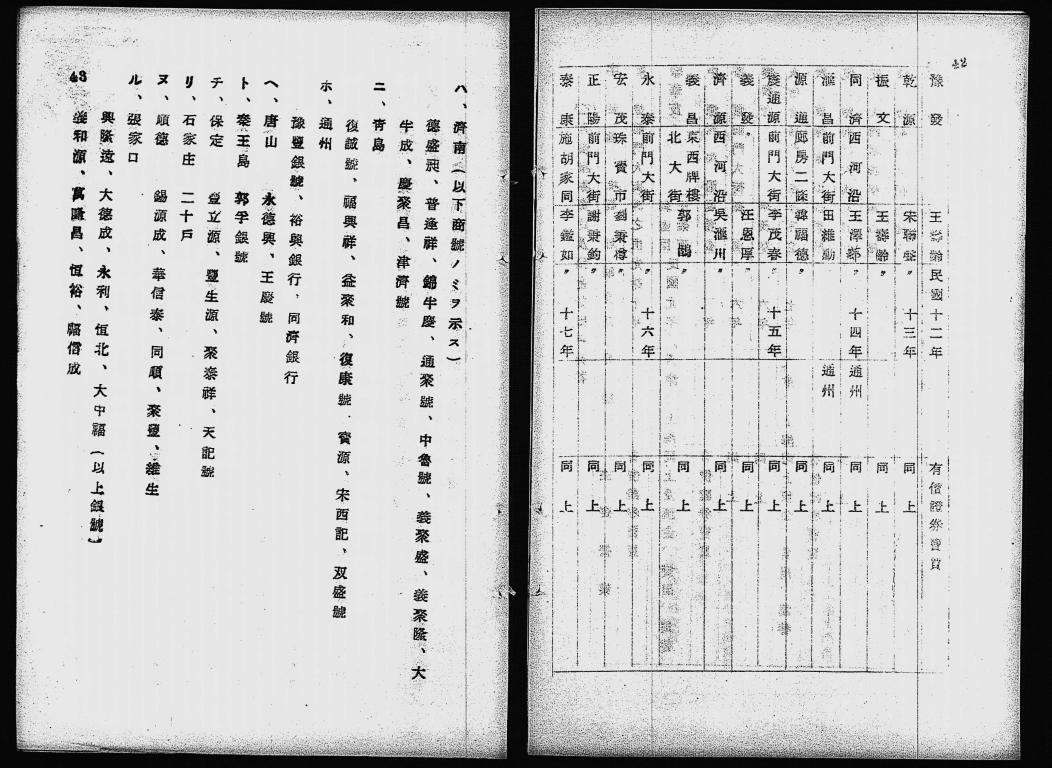 42
豫發 王壽齡 民國十二年 有價證券賣買
乾源 宋聯 十三年 同上
振文 王壽齡 〃 同上
同濟 西河沿 王澤 〃 十四年 通州 同上
滙昌 前門大街 田維勳 〃 通州 同上
源通 郎房二條 韓福德 〃 同上
震通源 前門大街 李茂春 〃 十五年 同上
義發 汪恩厚 〃 同上
濟源 西河沿 吳滙川 〃 同上
義昌 東西牌樓北大街 郭鵾 〃 同上
永泰 前門大街 〃 十六年 同上
安茂 珠寶市 劉秉樽 〃 同上
正陽 前門大街 謝秉鈞 〃 同上
泰康 施家胡同 李鑑如 〃 十七年 同上
ハ、濟南(以下商號ノミヲ示ス)
德盛昶、普逢祥、錦牛慶、通聚號、中魯號、義聚盛、義聚隆、大
牛成、慶聚昌、津濟號
ニ、青島
復誠號、福興祥、益聚和、復康號、寶源、宋西記、双盛號
ホ、通州
豫豐銀號、裕興銀行、同濟銀行
ヘ、唐山 永德興、王慶號
ト、秦王島 郭孚銀號
チ、保定 豐立源、豐生源、聚泰祥、天記號
リ、石家庄 二十戶
ヌ、順德 錫源成、華信泰、同順、聚豐、維生
ル、張家口
興隆遠、大德成、永利、恆北、大中福(以上銀號)
義和源、萬隆昌、恆裕、福信成
43